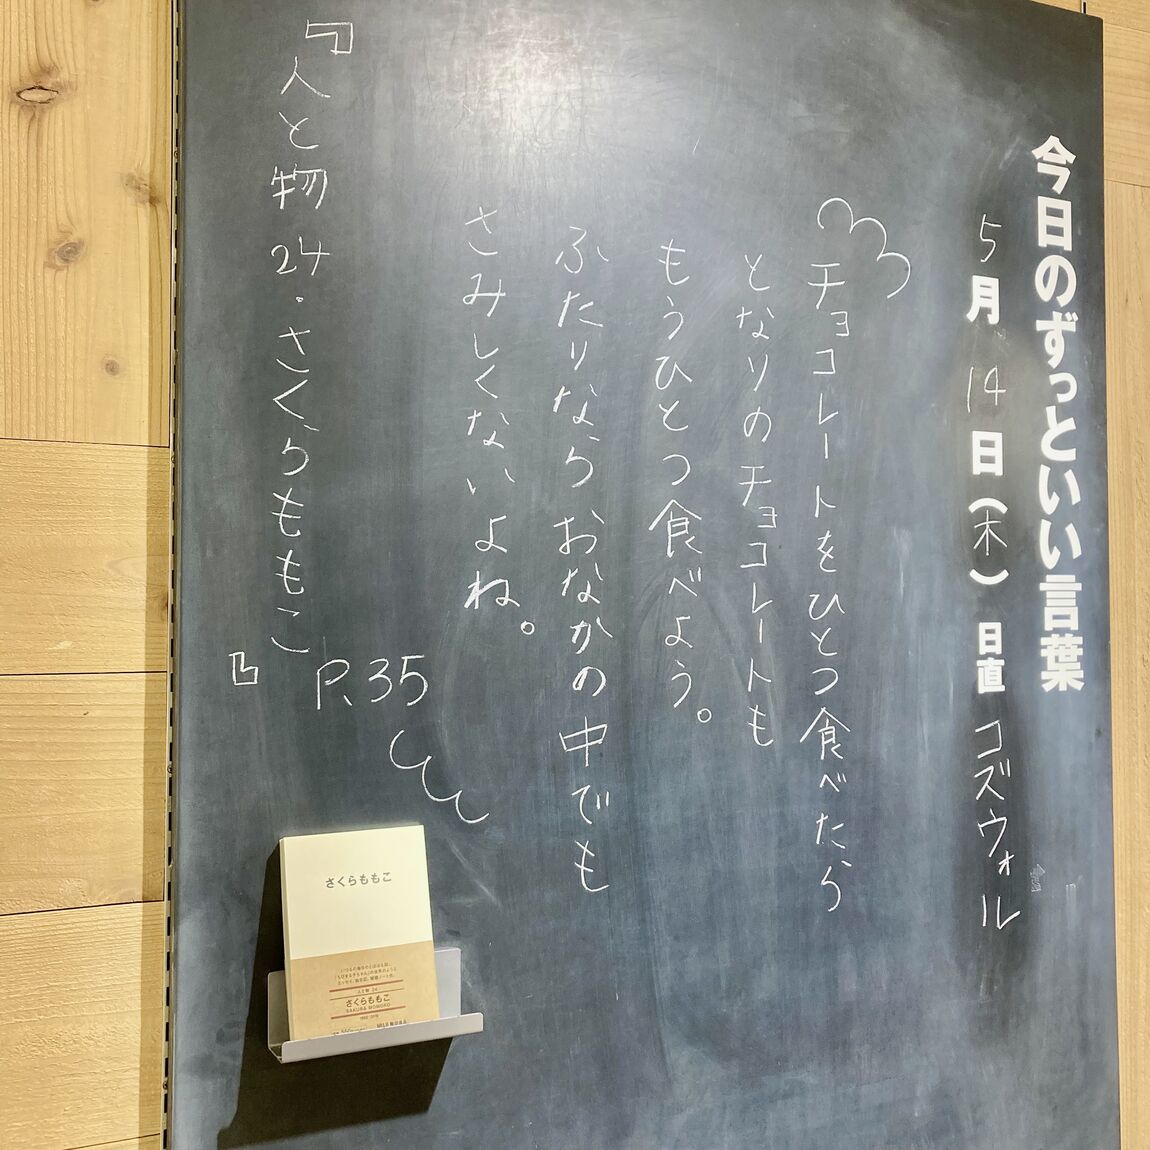 今日のずっといい言葉
5月14日(木) 日直 コズウォル
チョコレートをひとつ食べたら
となりのチョコレートも
もうひとつ食べよう。
ふたりなら おなかの中でも
さみしくないよね。
『人と物 24・さくらももこ』
P.35
さくらももこ
いつもの毎日の
人と物 24
さくらももこ
SAKURA MOMOKO
MUJI 無印良品